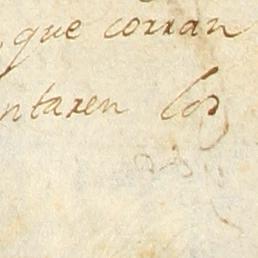 que corran
ntaren los